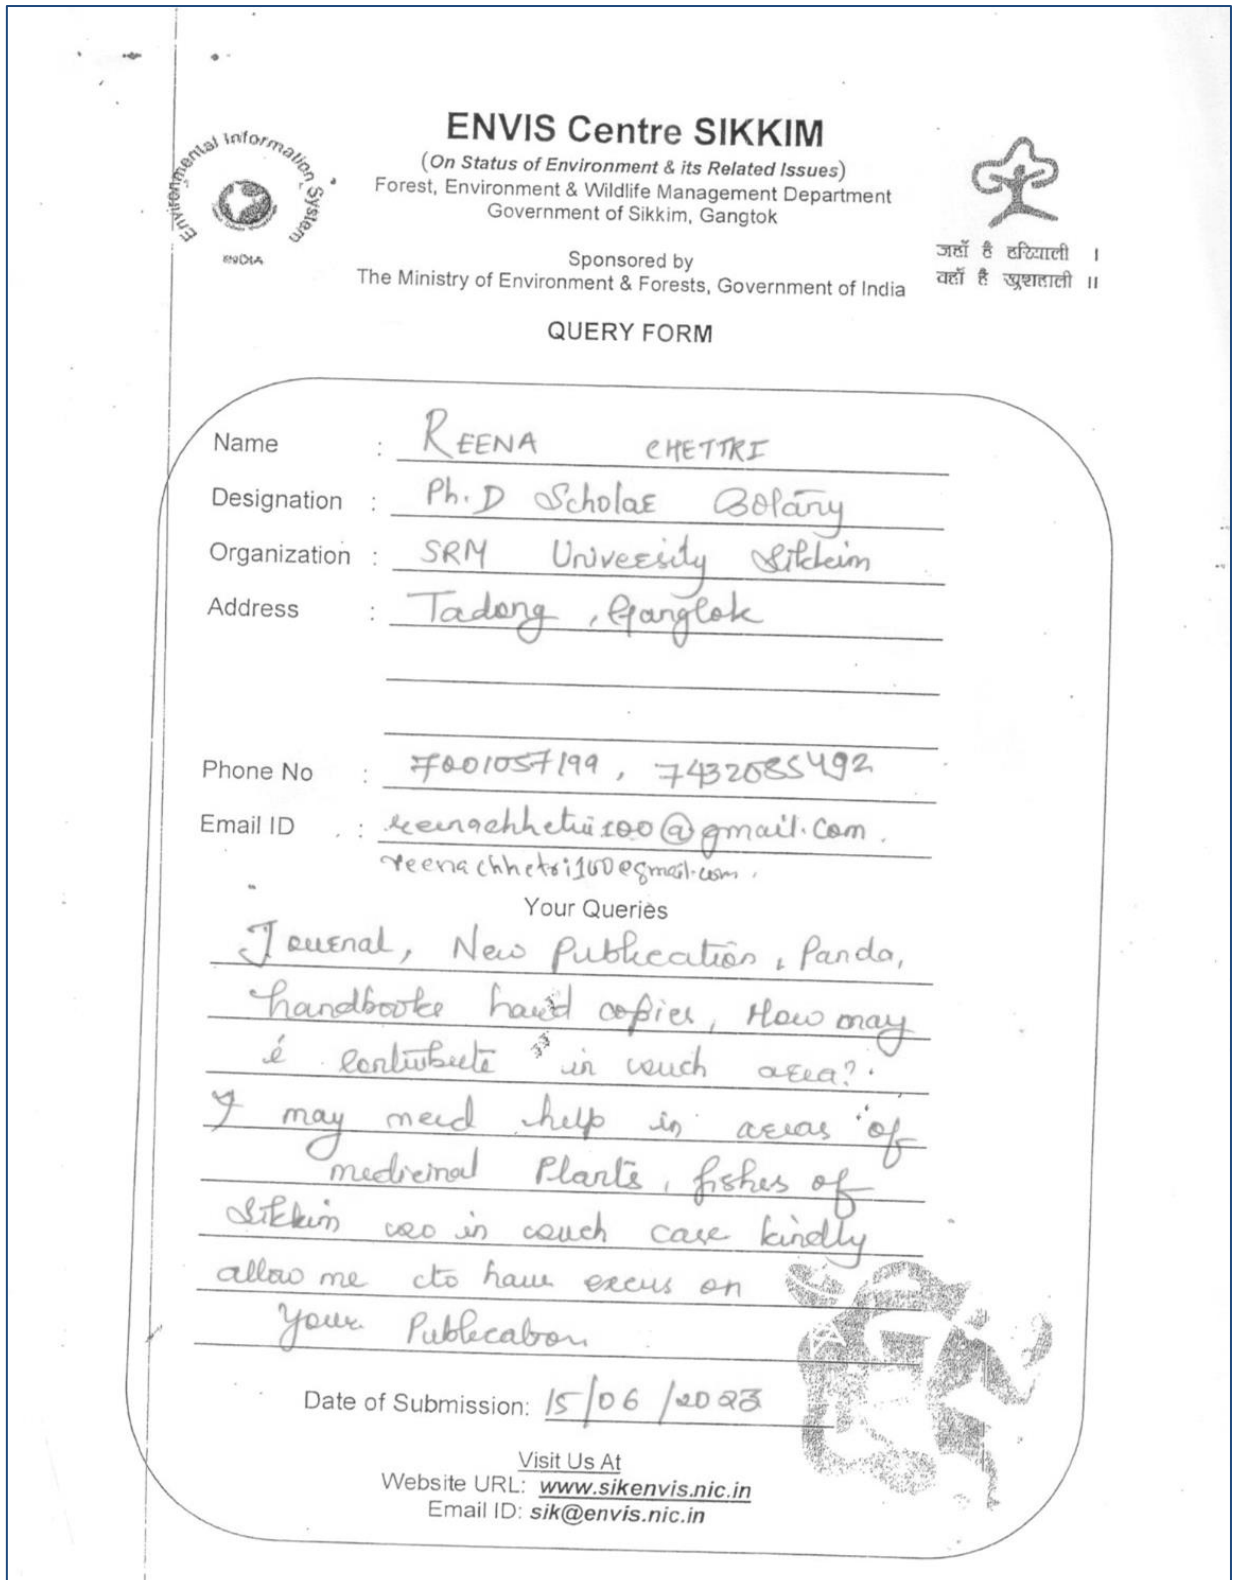 Environmental Information System
INDIA
ENVIS Centre SIKKIM
(On Status of Environment & its Related Issues)
Forest, Environment & Wildlife Management Department
Government of Sikkim, Gangtok
Sponsored by
The Ministry of Environment & Forests, Government of India
जहाँ है हरियाली ।
वहाँ है खुशहाली ॥
QUERY FORM
Name : REENA CHETTRI
Designation : Ph.D Scholar Botany
Organization : SRM University Sikkim
Address : Tadong, Gangtok
Phone No : 7001057199, 7432085492
Email ID : reenachhetri100@gmail.com.
reenachhetri100@gmail.com.
Your Queries
Journal, New Publication, Panda,
handbooke hard copies, How may
i contribute in such area?
I may need help in areas of
medicinal Plants, fishes of
Sikkim so in such case kindly
allow me to have excess on
Your Publication
Date of Submission: 15/06/2023
Visit Us At
Website URL: www.sikenvis.nic.in
Email ID: sik@envis.nic.in